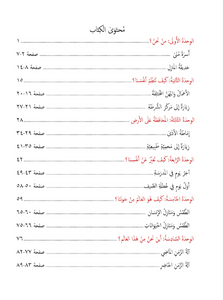 مُحتَوَى الكِتَاب
الوحدة الأولى: مَنْ نَحْنُ؟ ١
أُسرَةُ مُنَى صفحة ٢-٧
حَديقَةُ المَنْزِلِ صفحة ٨-١٤
الوحدة الثانية: كَيفَ نُنَظِّمُ أَنفُسَنا؟ ١٥
الأعْمَالُ وَالمِهَنُ المُخْتَلِفَةُ صفحة ١٦-٢٠
زِيارَةٌ إلى مَركَزِ الشُّرطَةِ صفحة ٢١-٢٧
الوحدة الثالثة: المُحَافَظَةُ عَلَى الأَرضِ ٢٨
إماطَةُ الأَذَى صفحة ٢٩-٣٤
زِيارَةٌ إلى مَحمِيَّةٍ طَبيعِيَّةٍ صفحة ٣٥-٤١
الوحدة الرابعة: كَيفَ نُعَبِّرُ عَنْ أَنفُسِنا؟ ٤٢
آخرُ يَومٍ في المَدرَسَةِ صفحة ٤٣-٤٩
أوَّلُ يَومٍ في عُطلَةِ الصَّيفِ صفحة ٥٠-٥٨
الوحدة الخامسة: كَيفَ هُوَ العَالَمُ مِنْ حَولِنا؟ ٥٩
الطَّقسُ وَمَنازِلُ الإنسَانِ صفحة ٦٠-٦٥
الطَّقسُ وَمَنازِلُ الحَيَوانَاتِ صفحة ٦٦-٧٥
الوحدة السادسة: أَينَ نَحنُ مِنْ هَذا العَالَمِ؟ ٧٦
آلةُ الزَّمَنِ المَاضِي صفحة ٧٧-٨٢
آلةُ الزَّمَنِ الحَاضِرِ صفحة ٨٣-٨٩